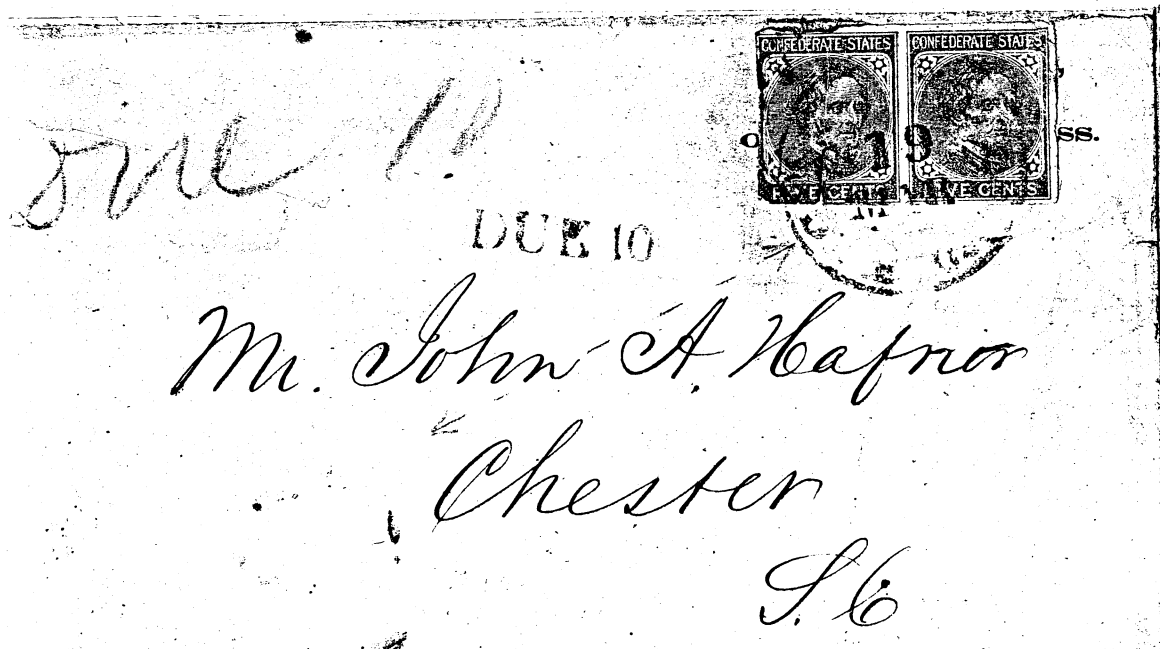 CONFEDERATE STATES CONFEDERATE STATES
19
ss.
FIVE CENTS FIVE CENTS
DUE 10
Mr. John A. Hafnor
Chester
S. C